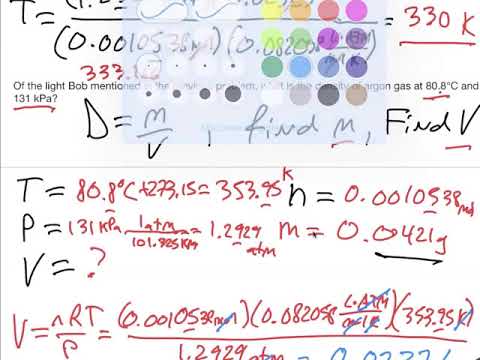 T = = 330 K
(0.0010538 mol)(0.082058 L·ATM
333.
Of the light Bob mentioned in the previous problem, what is the density of argon gas at 80.8°C and
131 kPa?
D = m/V , find m, Find V
T = 80.8°C + 273.15 = 353.95 K n = 0.0010538 mol
P = 131 KPa 1 atm/101.325 KPa = 1.2929 atm m = 0.0421g
V = ?
V = nRT/P = (0.0010538 mol)(0.082058 L·ATM/mol·K)(353.95 K)
1.2929 atm